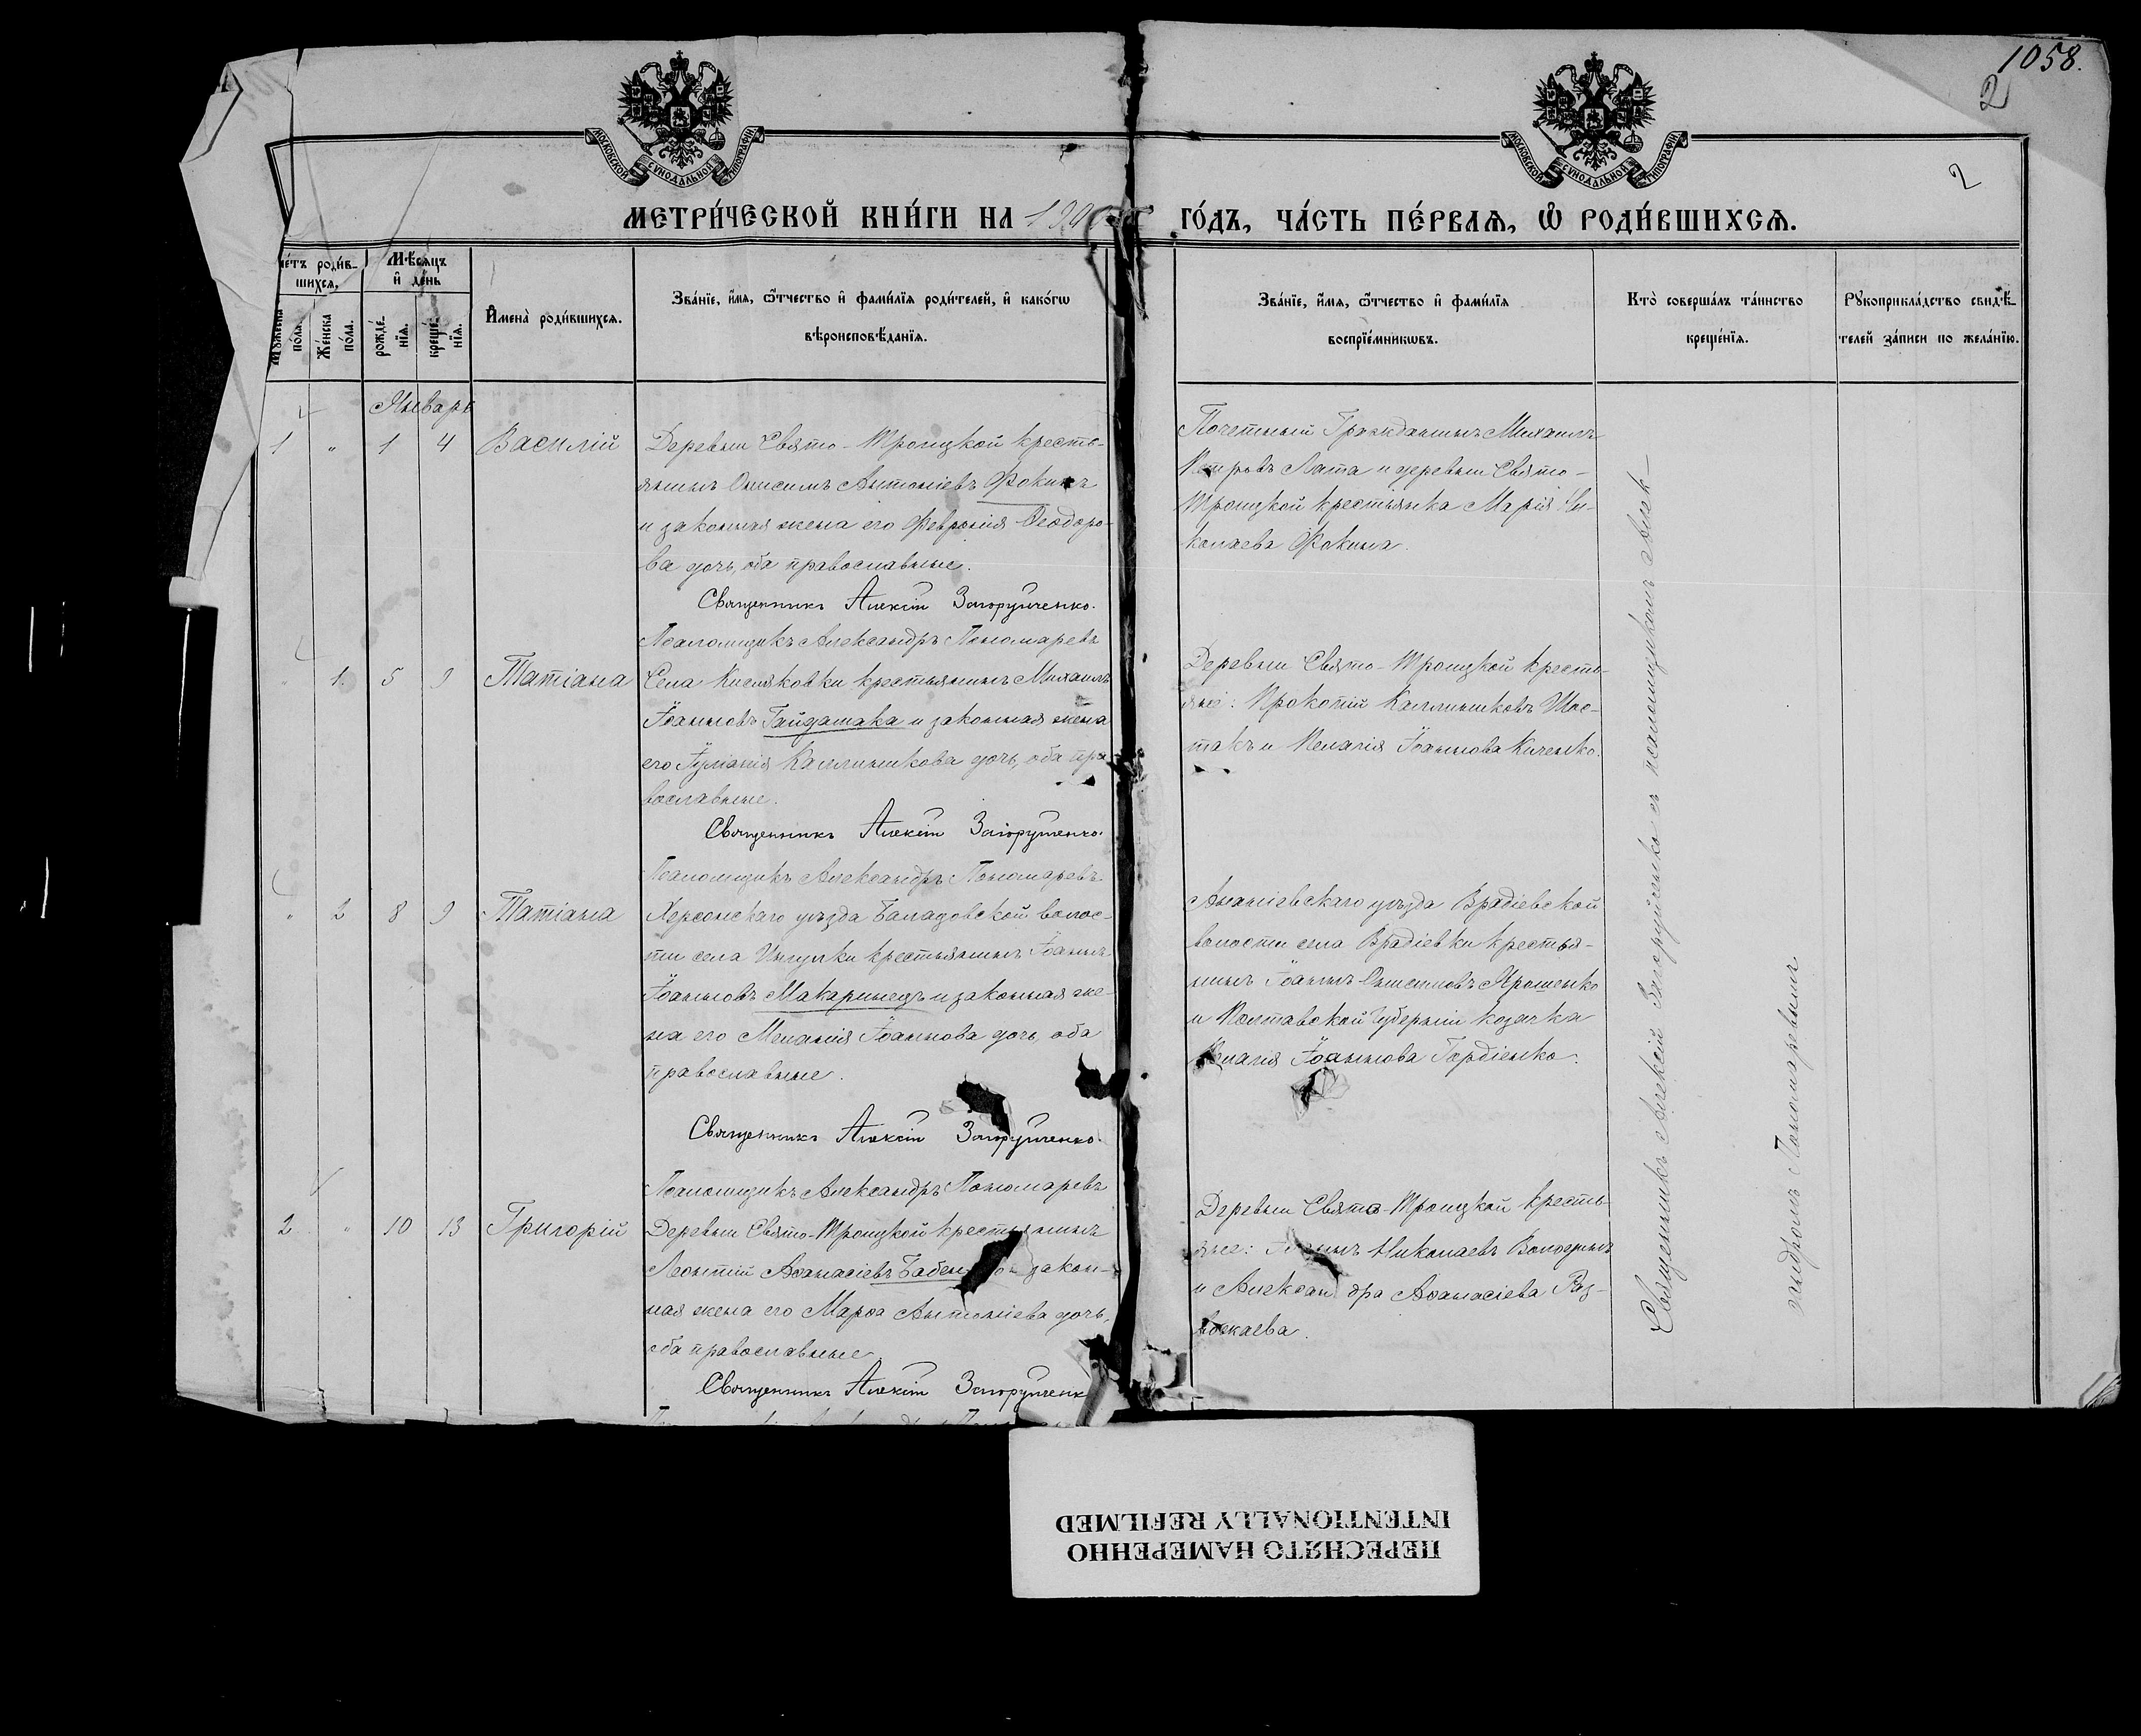 1058.
2
2
МОСКОВСКОЙ СѴНОДАЛЬНОЙ ТИПОГРАФІИ
МОСКОВСКОЙ СѴНОДАЛЬНОЙ ТИПОГРАФІИ
МЕТРИ́ЧЕСКОЙ КНИ́ГИ НА
ГО́ДЪ, ЧА́СТЬ ПЕ́РВАЯ, Ѡ РОДИ́ВШИХСЯ.
роди́в-
шихся,
Мѣсяцъ
и де́нь
По́ла.
Же́нска
по́ла.
рожде́-
нїя.
креще́-
нїя.
Имена̀ роди́вшихся.
Зва́нїе, и́мя, ѻ҆́тчество и фами́лїя роди́телей, и како́гѡ
вѣроисповѣ́данїя.
Зва́нїе, и́мя, ѻ҆́тчество и фами́лїя
воспрїе́мникѡвъ.
Кто̀ соверша́лъ та́инство
креще́нїя.
Рꙋкоприкла́дство свидѣ́-
телей за́писи по жела́нїю.
Январь
1 " 1 4 Василій
Деревни Свято-Троицкой кресть-
янинъ Онисимъ Антоніевъ Фокинъ
и законная жена его Феѵронія Ѳеодоро-
ва дочь, оба православные.
Священникъ Алексій Загоруйченко.
Псаломщикъ Александръ Пономаревъ
Почетный Гражданинъ Михаилъ
Петровъ Лата и деревни Свято-
Троицкой крестьянка Марія Ни-
колаева Фокина.
" 1. 5 9 Татіана
Села Кисляковки крестьянинъ Михаилъ
Іоанновъ Гайдамака и законная жена
его Іуліанія Каллиникова дочь, оба пра
вославные.
Священникъ Алексій Загоруйченко.
Псаломщикъ Александръ Пономаревъ
Деревни Свято-Троицкой кресть-
яне: Прокопій Каллиниковъ Шос-
такъ и Пелагія Іоаннова Киченко.
" 2 8 9 Татіана
Херсонскаго уѣзда Балацовской волос-
ти села Ингулки крестьянинъ Іоаннъ
Іоанновъ Макаринецъ и законная же-
на его Меланія Іоаннова дочь, оба
православные.
Священникъ Алексій Загоруйченко.
Псаломщикъ Александръ Пономаревъ
Ананіевскаго уѣзда Врадіевской
волости села Врадіевки крестья-
нинъ Іоаннъ Онисимовъ Ярошенко
и Полтавской Губерніи козачка
Іоаннова Гордіенко.
2. " 10 13 Григорій
Деревни Свято-Троицкой крестьянинъ
Леонтій Аѳанасіевъ закон-
ная жена его Марѳа Антоніева дочь,
оба православные.
Священникъ Алексій Загоруйченк
Деревни Свято-Троицкой кресть-
яне: Николаевъ
и Александра Аѳанасіева
Священникъ Алексій Загоруйченко съ псаломщикомъ Алек-
сандромъ Пономаревымъ
ПЕРЕСНЯТО НАМЕРЕННО
INTENTIONALLY REFILMED